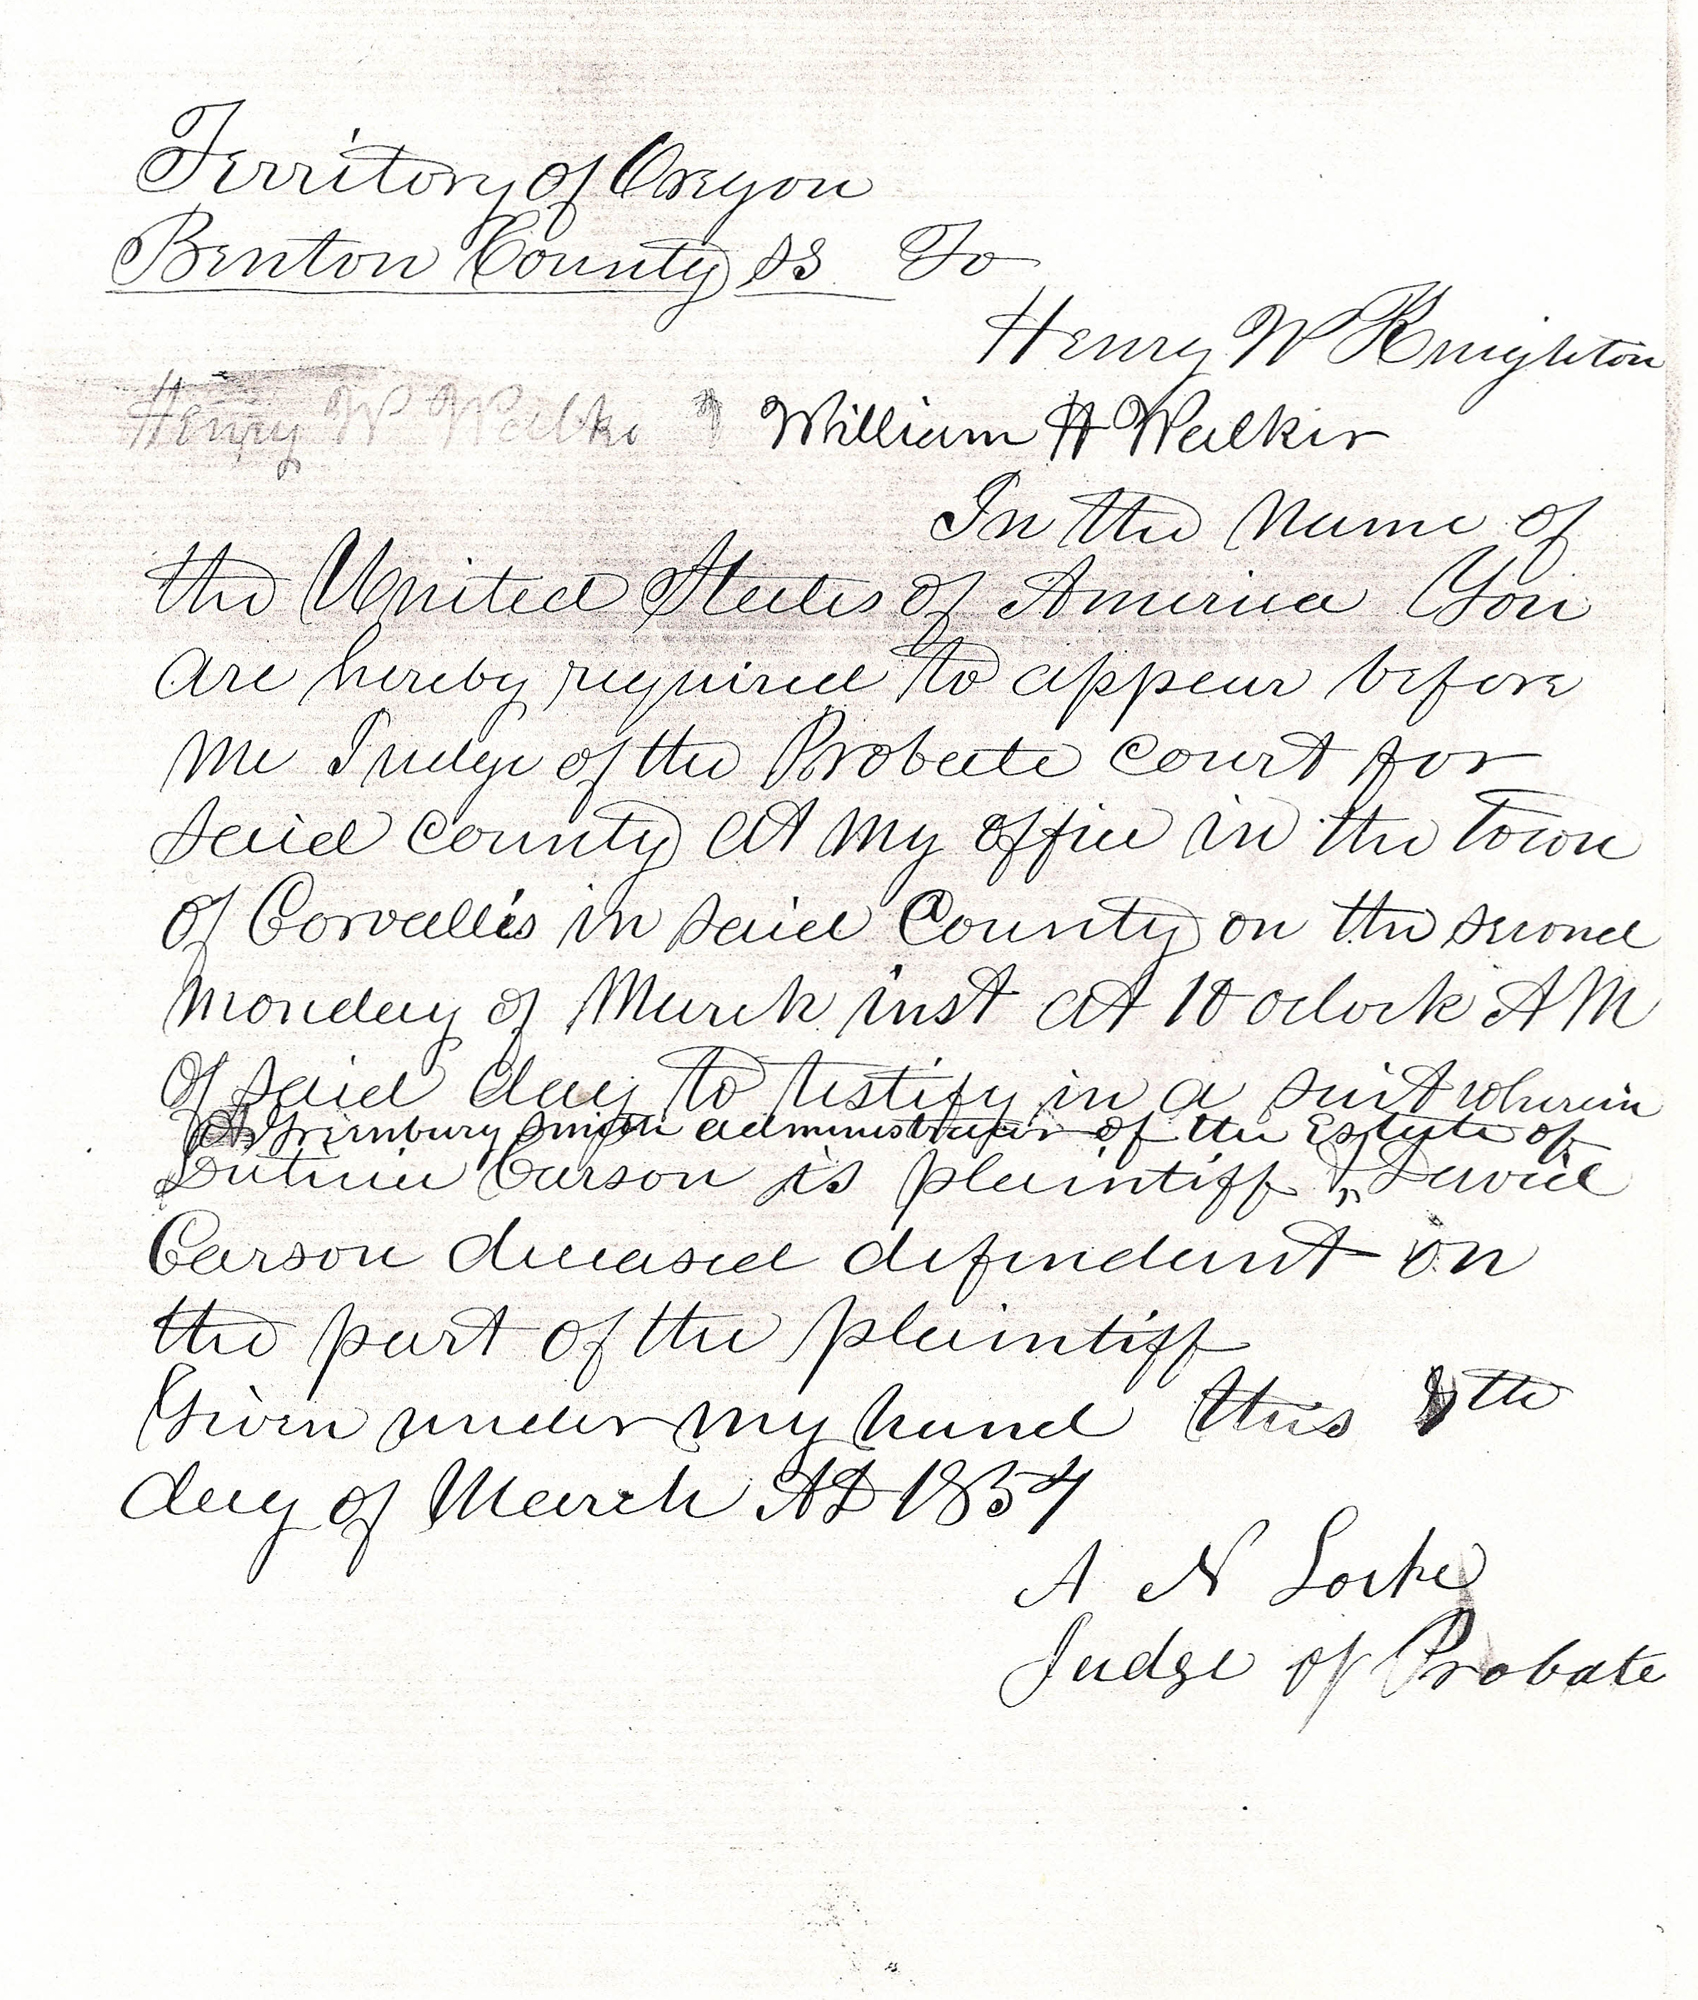 Territory of Oregon
Benton County SS To
Henry W Knighton
Henry W Walke & William H Walker
In the name of
the United States of America You
are hereby required to appear before
me Judge of the Probate court for
said county at my office in the town
of Corvallis in said County on the second
Monday of March inst at 10 oclock AM
of said day to testify in a suit wherein
Grenbury Smith administrator of the Estate of
Lutitia Carson is plaintiff & David
Carson deceased defendant on
the part of the plaintiff
Given under my hand this th
day of March AD 1854
A N Locke
Judge of Probate